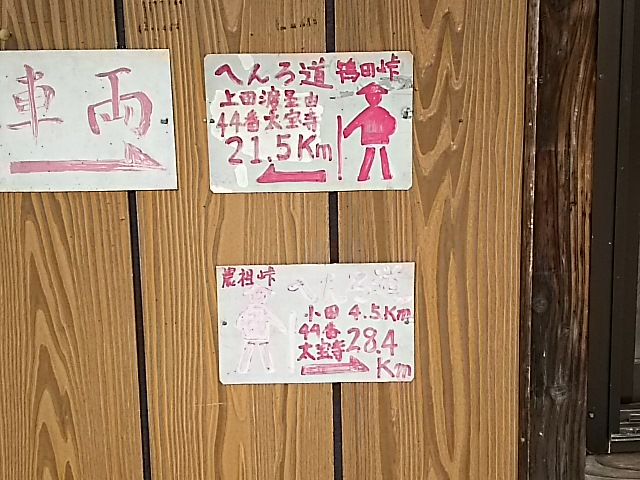 車両
へんろ道 鴇田峠
上田渡経由
44番大宝寺
21.5Km
農祖峠 へんろ道
小田 4.5Km
44番
大宝寺 28.4
Km